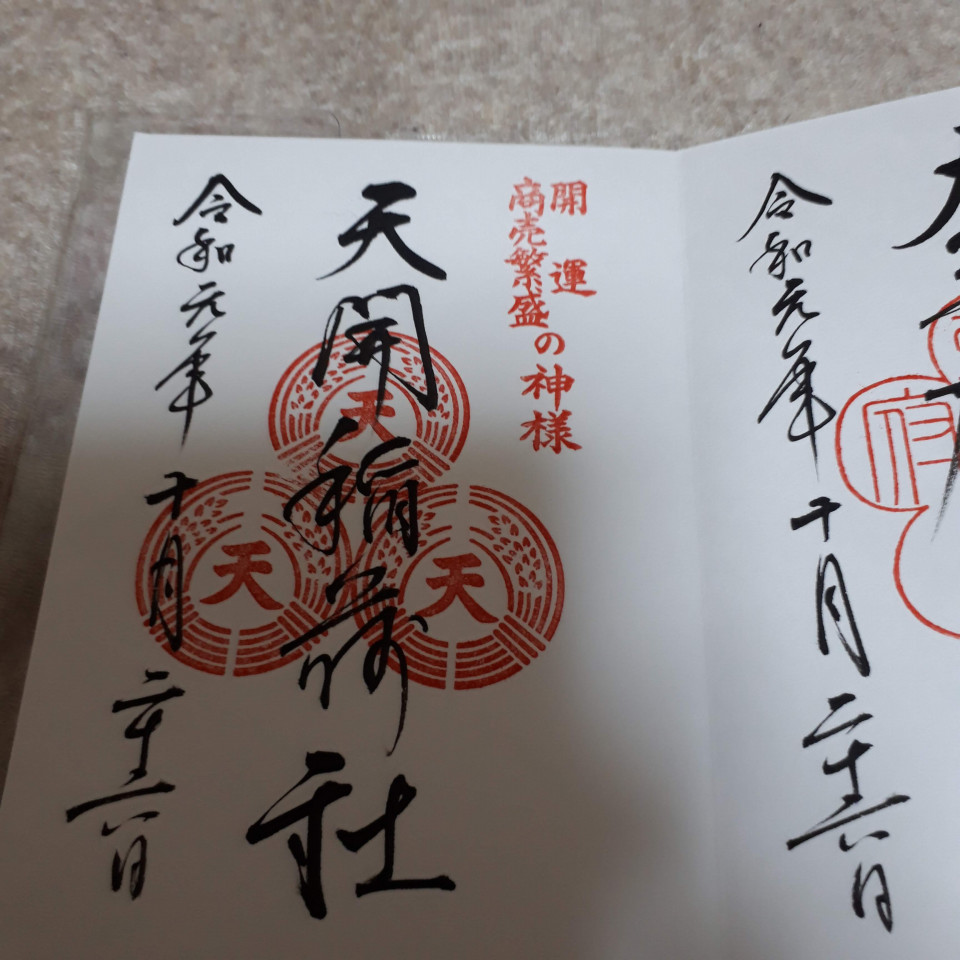 令和元年十月二十六日
開運
商売繁盛の神様
天開稲荷社
天
天
天
令和元年十月二十六日
府